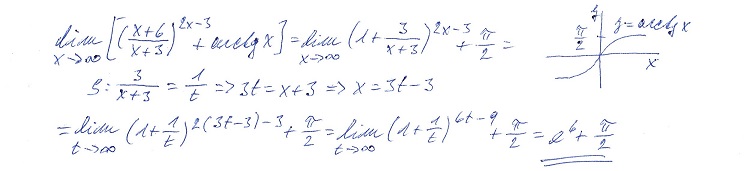 lim x→∞ [((x+6)/(x+3))^(2x-3) + arctg x] = lim x→∞ (1 + 3/(x+3))^(2x-3) + π/2 =
y
π/2
y = arctg x
x
S: 3/(x+3) = 1/t => 3t = x+3 => x = 3t-3
= lim t→∞ (1 + 1/t)^(2(3t-3)-3) + π/2 = lim t→∞ (1 + 1/t)^(6t-9) + π/2 = e^6 + π/2